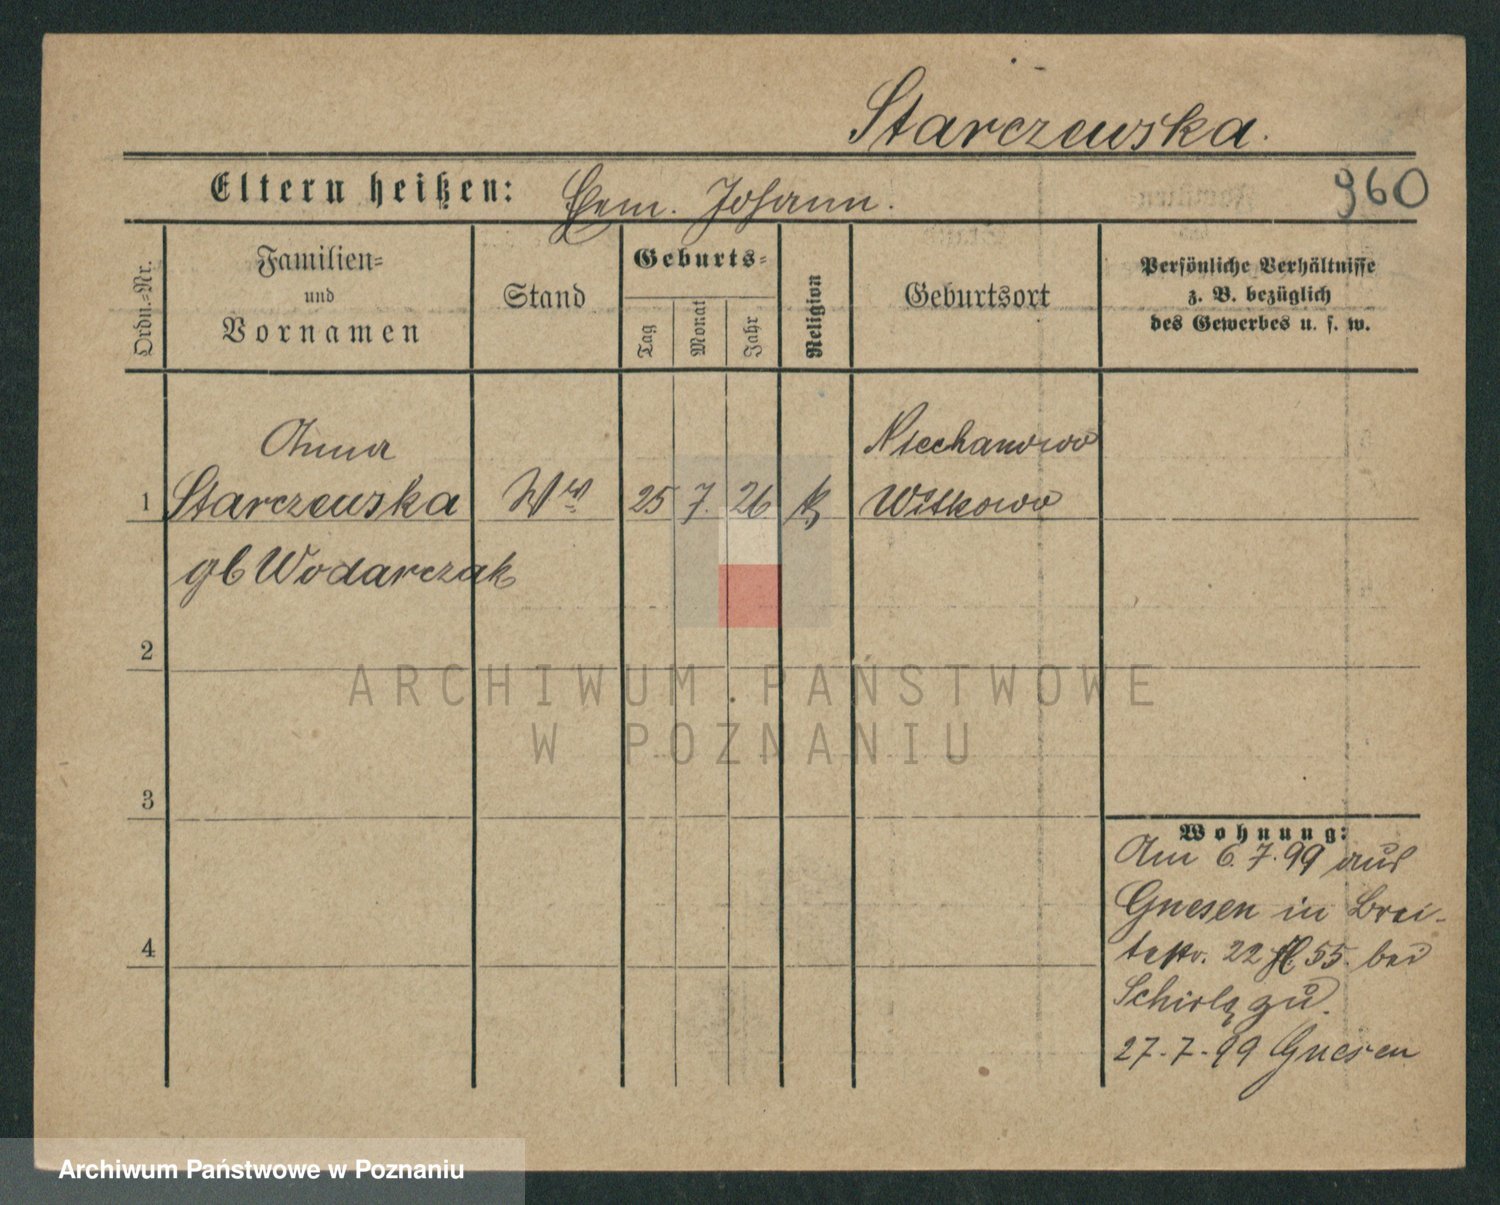 Starczewska.
Eltern heißen: Ehem. Johann.
960
Ordn.=Nr.
Familien=
und
Vornamen
Stand
Geburts=
Tag
Monat
Jahr
Religion
Geburtsort
Persönliche Verhältnisse
z. B. bezüglich
des Gewerbes u. s. w.
Anna
Niechanowo
1 Starczewska Ww 25 7. 26 k Witkowo
gb Wodarczak
2
3
4
Wohnung:
Am 6.7.99 aus
Gnesen in Brei-
testr. 22 55. bei
zu.
27.7.99 Gnesen
ARCHIWUM PAŃSTWOWE
W POZNANIU
Archiwum Państwowe w Poznaniu